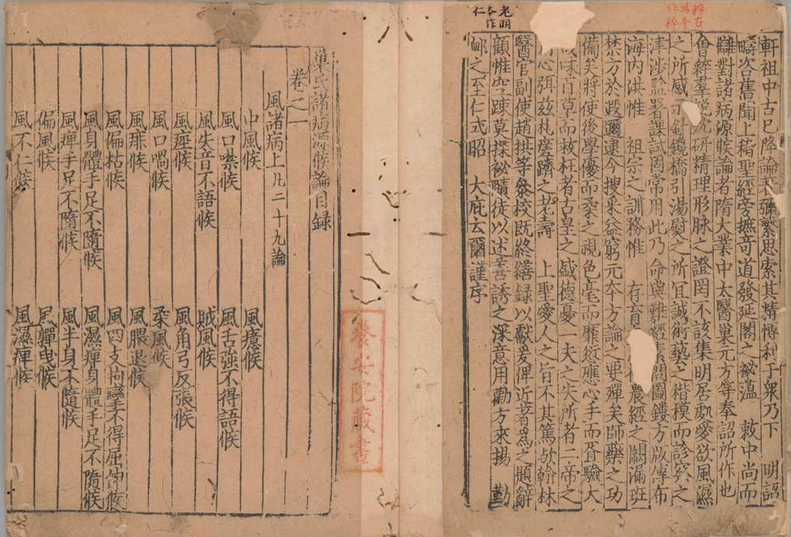 粹古
爲今
作粹
老明
本作
仁
軒祖中古已降論彌繁思索其精博利于衆乃下 明詔
疇咨舊聞上稽聖經旁摭奇道發延閣之祕蘊 敕中尚而
讎對諸病源候論者隋大業中太醫巢元方等奉詔所作也
會稡羣說沈研精理形脉之證罔不該集明居處愛欲風濕
之所感示針鑱橋引湯熨之所宜誠術藝之楷模而診察之
津涉監署課試固常用此乃 命與難經素問圖鏤方版傳布
海內洪惟 祖宗之訓務惟 存育 農經之闕漏班
禁方於遐邇逮今搜采益窮元本方論之要殫矣師藥之功
備矣將使後學優而柔之視色毫而靡愆應心手而胥驗大
味百草而救枉者古皇之盛德憂 夫之失所者二帝之
心弭茲札瘥躋之仁壽 上聖愛人之旨不其篤歟翰林
醫官副使趙拱等參校既終繕錄以獻爰俾近著爲之題辭
顧惟空疎莫探祕賾徒以述善誘之深意用勸方來揚 勤
䘏之至仁式昭 大庇云爾謹序
養安院藏書
巢氏諸病源候論目録
卷之一
風諸病上凡二十九論
中風候 風癔候
風口噤候 風舌強不得語候
風失音不語候 賊風候
風痙候 風角弓反張候
風口喎候 柔風候
風痱候 風腲退候
風偏枯候 風四支拘攣不得屈伸候
風身體手足不隨候 風濕痹身體手足不隨候
風痹手足不隨候 風半身不隨候
偏風候 風軃曳候
風不仁候 風濕痹候